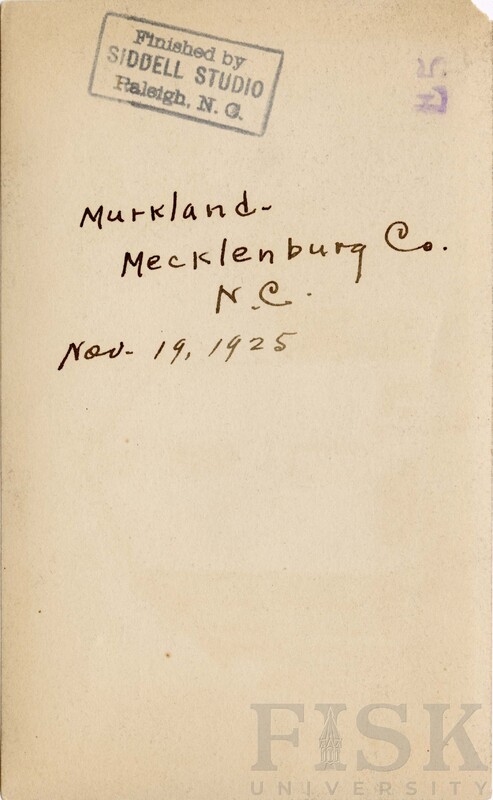 Finished by
SIDDELL STUDIO
Raleigh, N. C.
Murkland-
Mecklenburg Co.
N.C.
Nov. 19, 1925
FISK
UNIVERSITY